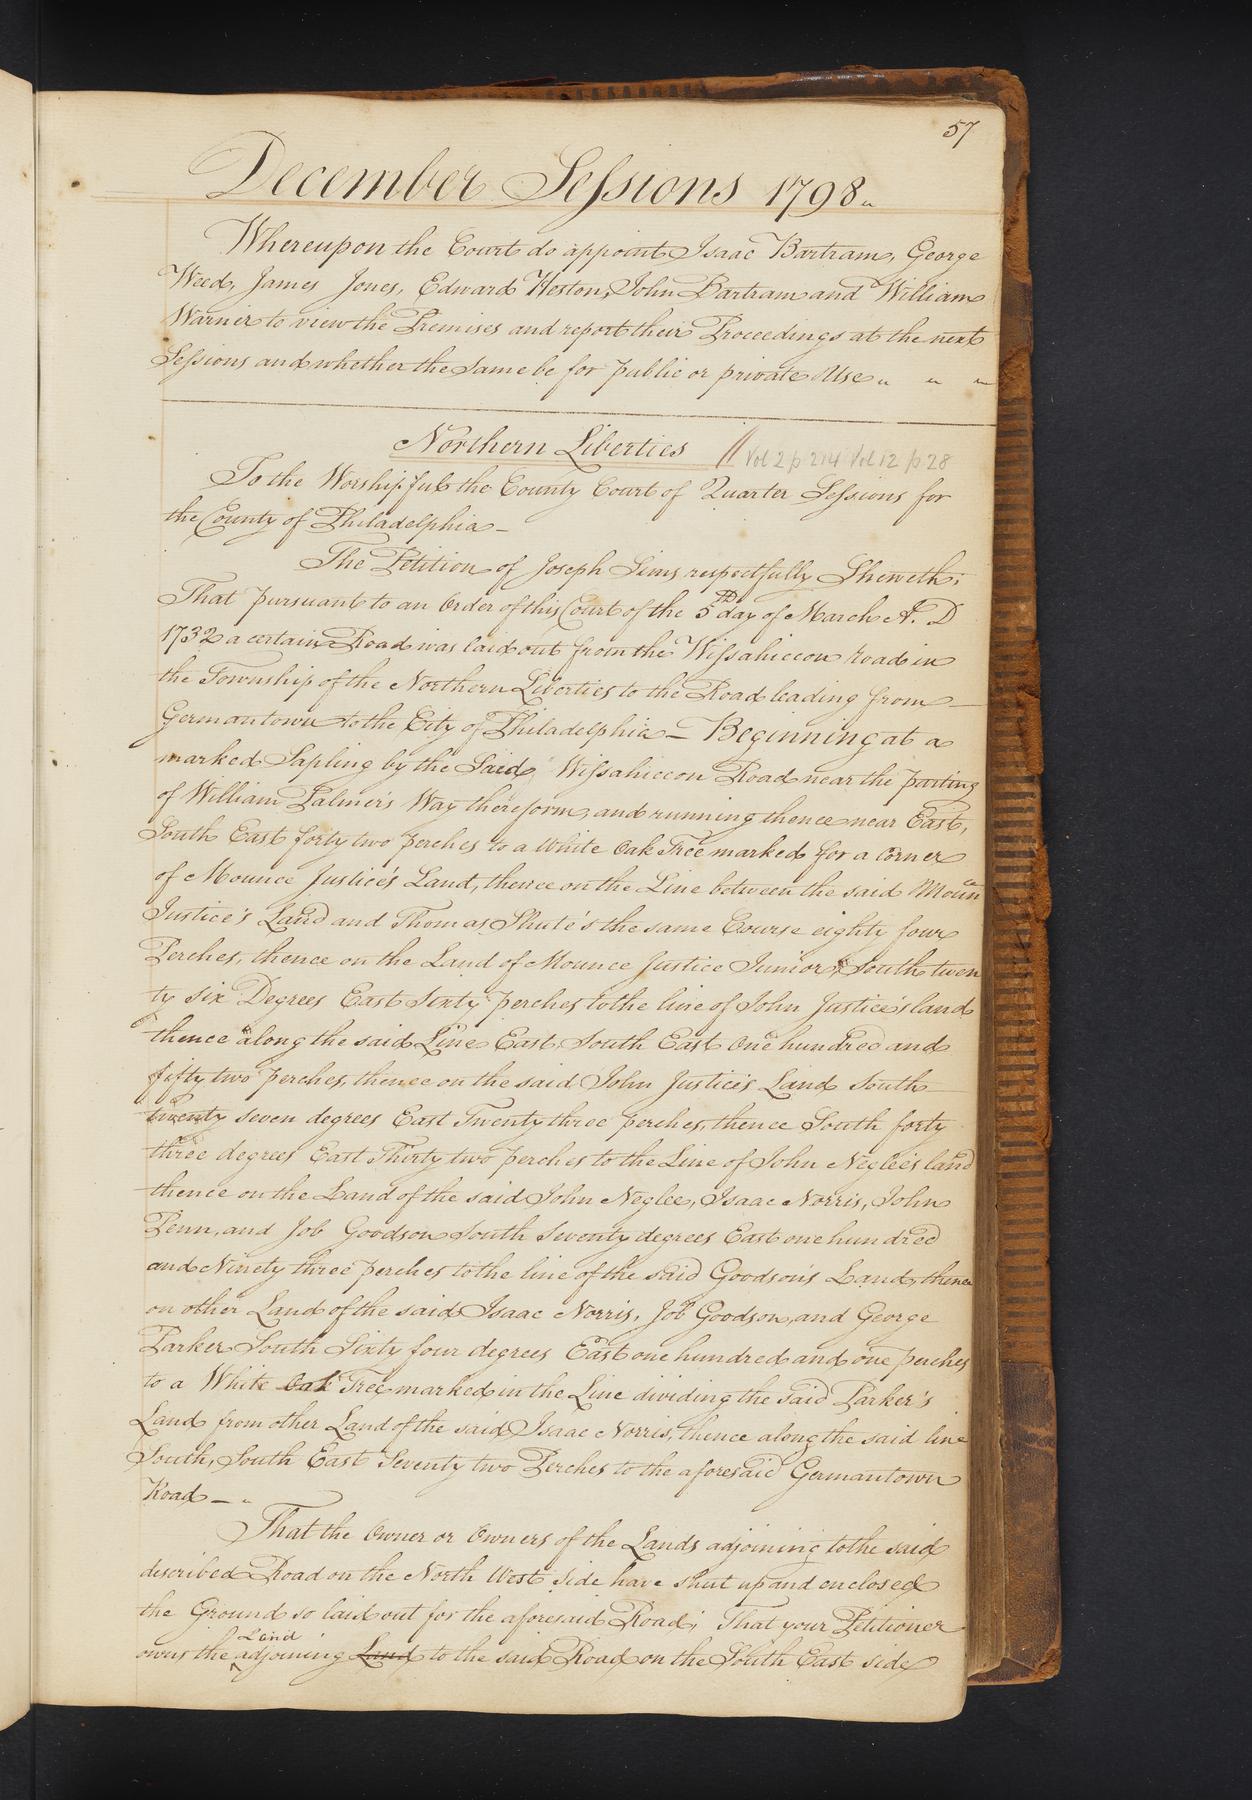 57
December Sessions 1798
Whereupon the Court do appoint Isaac Bartram, George
Weed, James Jones, Edward Heston, John Bartram and William
Warner to view the Premises and report their Proceedings at the next
Sessions and whether the same be for public or private Use " " "
Northern Liberties // Vol 2 p 214 Vol 12 p 28
To the Worshipful the County Court of Quarter Sessions for
the County of Philadelphia –
The Petition of Joseph Sims respectfully Sheweth;
That pursuant to an Order of this Court of the 5th day of March A. D
1732 a certain Road was laid out from the Wissahiccon road in
the Township of the Northern Liberties to the Road leading from
Germantown to the City of Philadelphia – Beginning at a
marked Sapling by the Said Wissahiccon Road near the parting
of William Palmer's Way thereform, and running thence near East,
South East forty two perches to a White Oak Tree marked for a corner
of Mounce Justice's Land, thence on the Line between the said Mounce
Justice's Land and Thomas Shute's the same Course eighty four
Perches, thence on the Land of Mounce Justice Junior, South twen
ty six Degrees East Sixty perches to the line of John Justice's land
thence along the said Line East South East One hundred and
fifty two perches, thence on the said John Justice's Land South
twenty seven degrees East Twenty three perches, thence South forty
three degrees East Thirty two perches to the Line of John Neglee's land
thence on the Land of the said John Neglee, Isaac Norris, John
Penn, and Job Goodson South Seventy degrees East one hundred
and Ninety three perches to the line of the said Goodson's Land, thence
on other Land of the said Isaac Norris, Job Goodson, and George
Parker South Sixty four degrees East one hundred and one perches
to a White Oak Tree marked in the Line dividing the said Parker's
Land from other Land of the said Isaac Norris, thence along the said line
South, South East Seventy two Perches to the aforesaid Germantown
Road – "
That the Owner or Owners of the Lands adjoining to the said
described Road on the North West side have shut up and enclosed
the Ground so laid out for the aforesaid Road; That your Petitioner
owns the Land adjoining Land to the said Road on the South East side